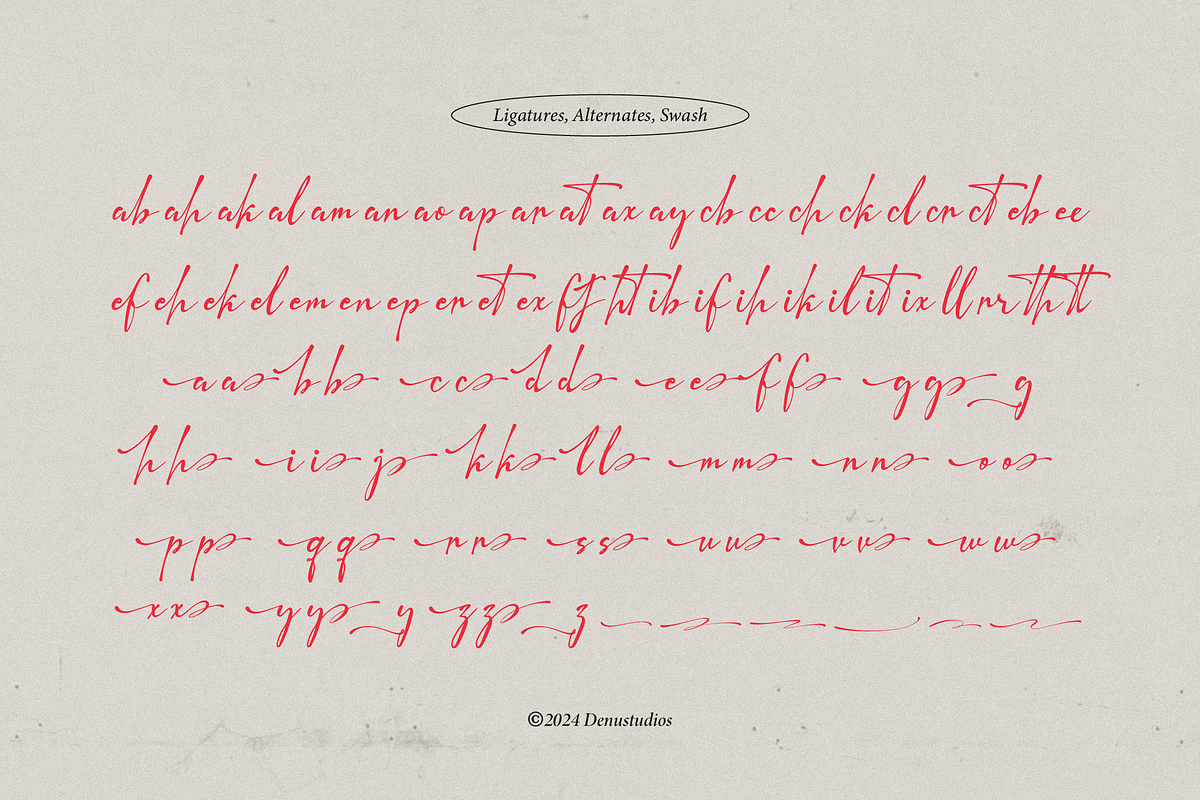 Ligatures, Alternates, Swash
ab ah ak al am an ao ap ar at ax ay cb cc ch ck cl cr ct eb ee
ef eh ek el em en ep er et ex ff ft ht ib if ih ik il it ix ll rr th tt
a a b b c c d d e e f f g g g
h h i i j k k l l m m n n o o
p p q q r r s s u u v v w w
x x y y y z z z
©2024 Denustudios